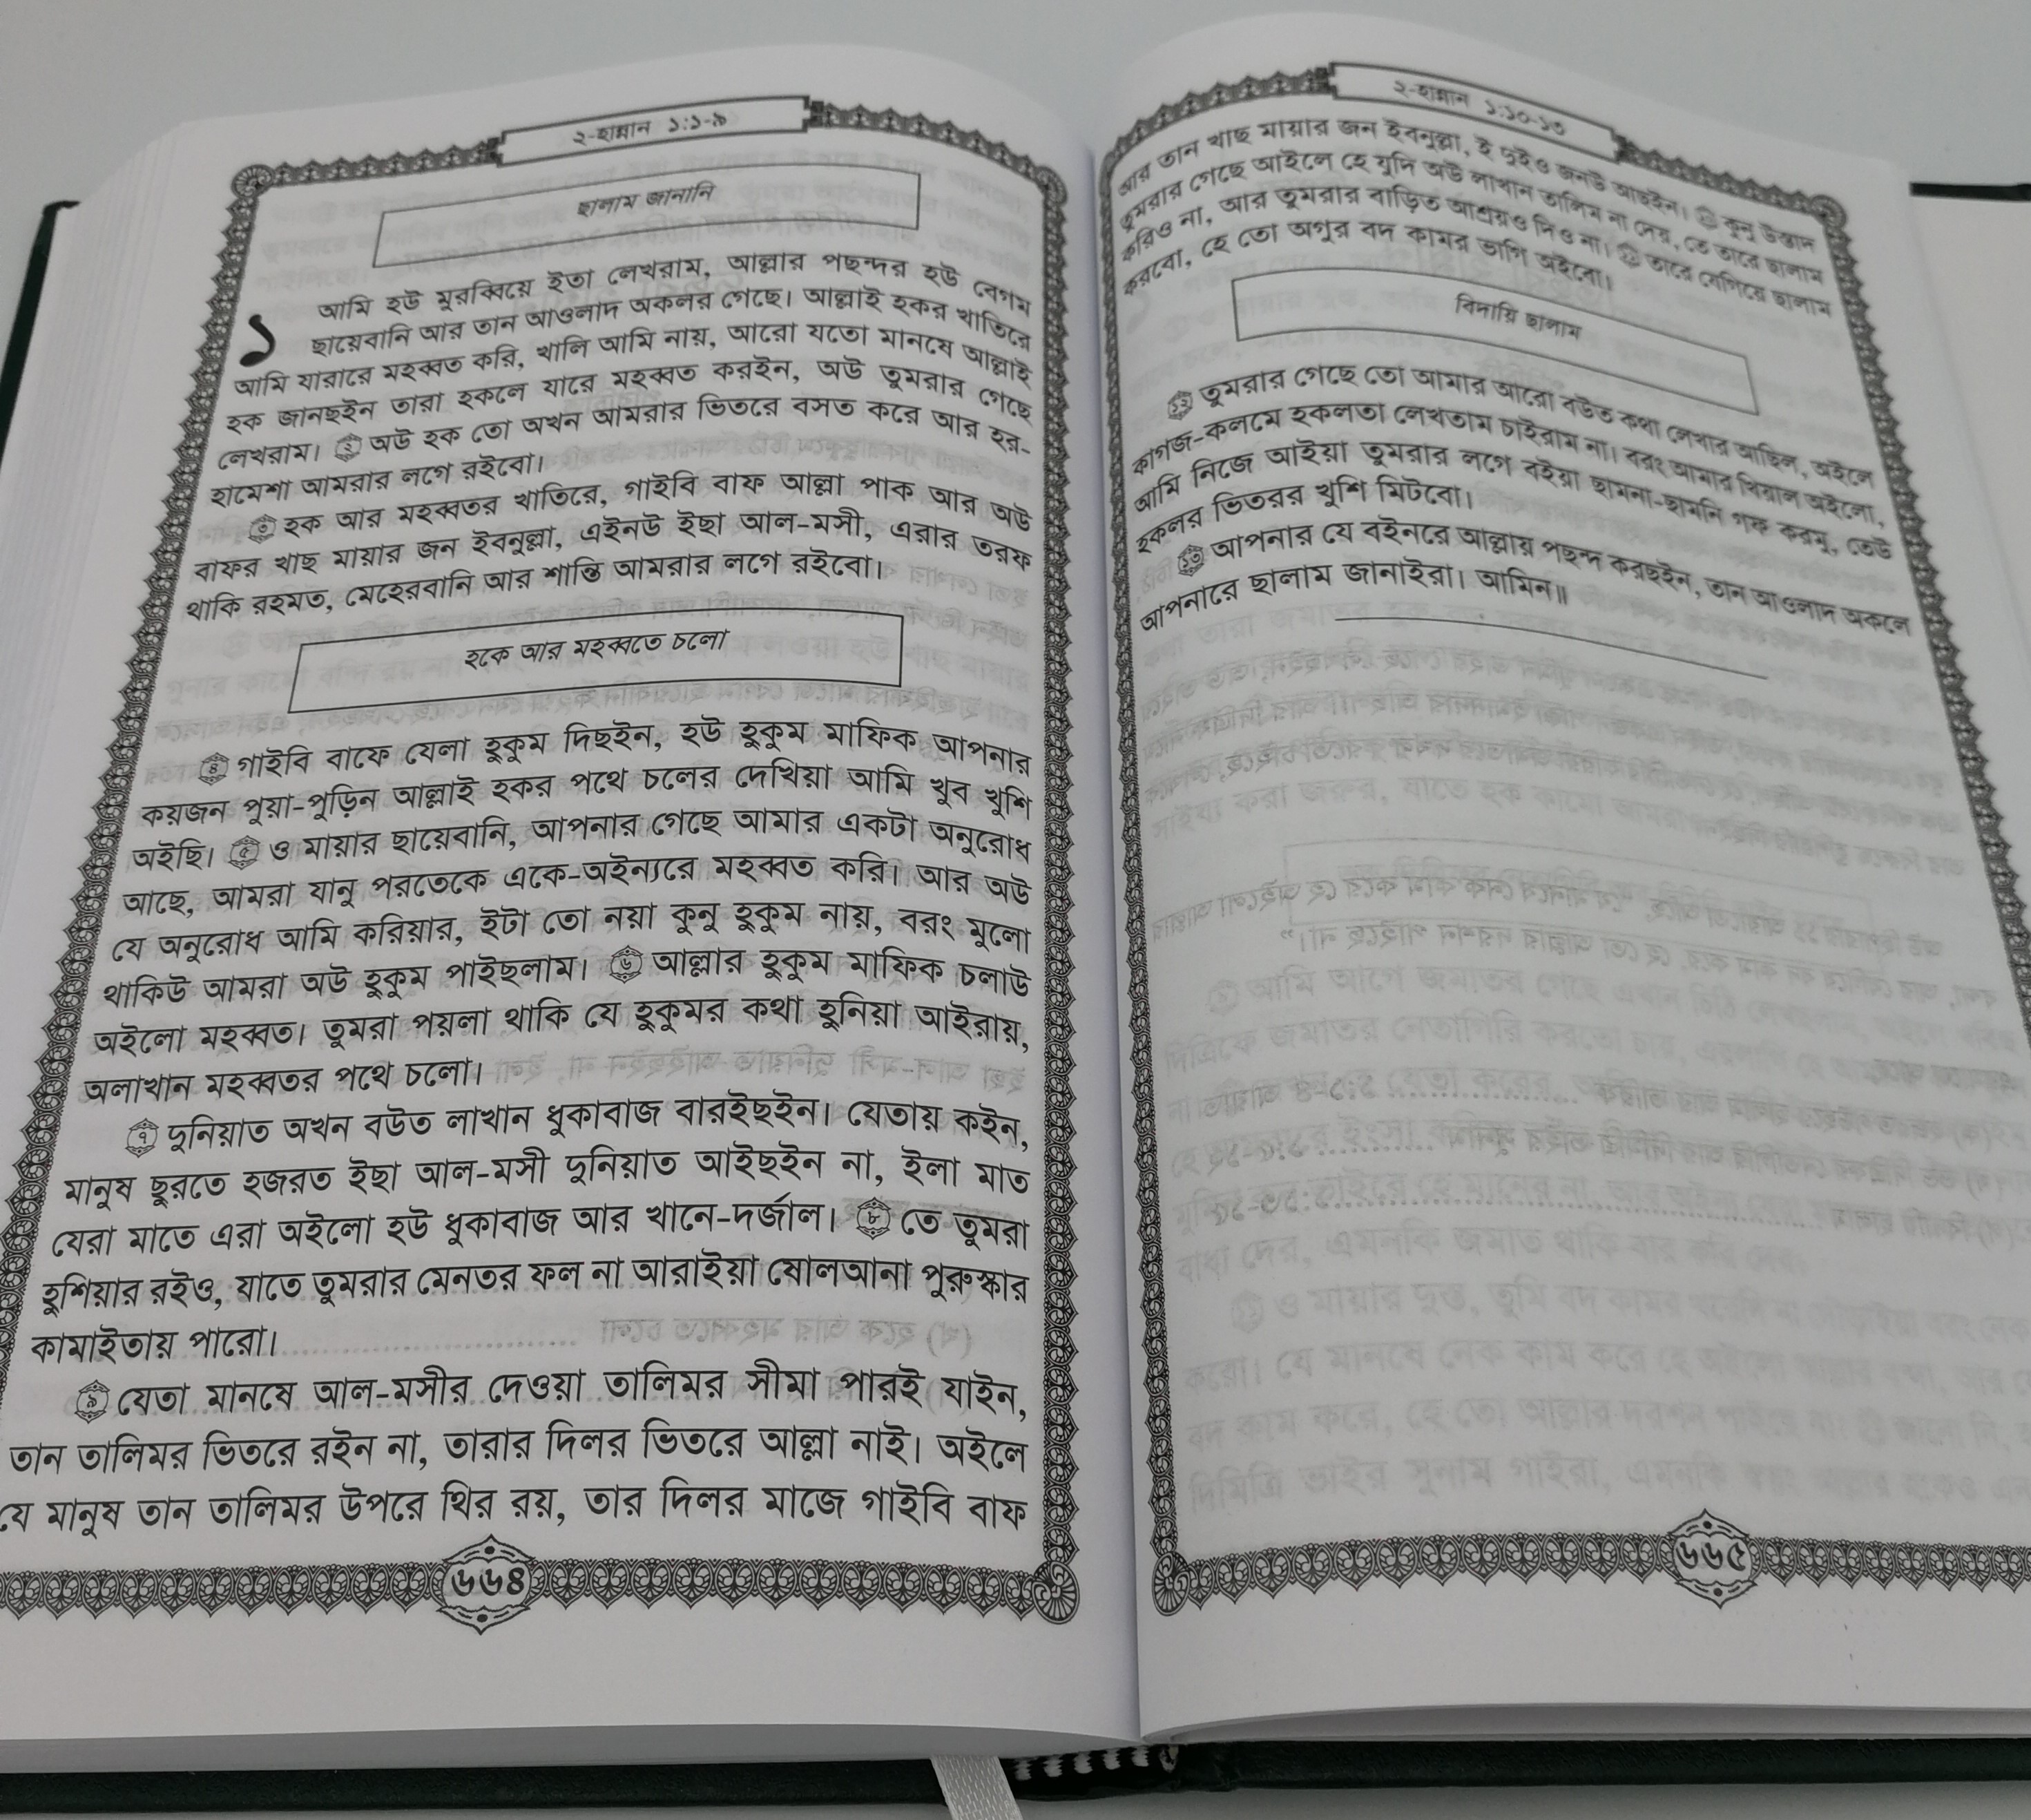 ২-হান্নান ১:১-৯
ছালাম জানানি
১ আমি হউ মুরব্বিয়ে ইতা লেখরাম, আল্লার পছন্দর হউ বেগম
ছায়েবানি আর তান আওলাদ অকলর গেছে। আল্লাই হকর খাতিরে
আমি যারারে মহব্বত করি, খালি আমি নায়, আরো যতো মানষে আল্লাই
হক জানছইন তারা হকলে যারে মহব্বত করইন, অউ তুমরার গেছে
লেখরাম। ২ অউ হক তো অখন আমরার ভিতরে বসত করে আর হর-
হামেশা আমরার লগে রইবো।
৩ হক আর মহব্বতর খাতিরে, গাইবি বাফ আল্লা পাক আর অউ
বাফর খাছ মায়ার জন ইবনুল্লা, এইনউ ইছা আল-মসী, এরার তরফ
থাকি রহমত, মেহেরবানি আর শান্তি আমরার লগে রইবো।
হকে আর মহব্বতে চলো
৪ গাইবি বাফে যেলা হুকুম দিছইন, হউ হুকুম মাফিক আপনার
কয়জন পুয়া-পুড়িন আল্লাই হকর পথে চলের দেখিয়া আমি খুব খুশি
অইছি। ৫ ও মায়ার ছায়েবানি, আপনার গেছে আমার একটা অনুরোধ
আছে, আমরা যানু পরতেকে একে-অইন্যরে মহব্বত করি। আর অউ
যে অনুরোধ আমি করিয়ার, ইটা তো নয়া কুনু হুকুম নায়, বরং মুলো
থাকিউ আমরা অউ হুকুম পাইছলাম। ৬ আল্লার হুকুম মাফিক চলাউ
অইলো মহব্বত। তুমরা পয়লা থাকি যে হুকুমর কথা হুনিয়া আইরায়,
অলাখান মহব্বতর পথে চলো।
৭ দুনিয়াত অখন বউত লাখান ধুকাবাজ বারইছইন। যেতায় কইন,
মানুষ ছুরতে হজরত ইছা আল-মসী দুনিয়াত আইছইন না, ইলা মাত
যেরা মাতে এরা অইলো হউ ধুকাবাজ আর খানে-দর্জাল। ৮ তে তুমরা
হুশিয়ার রইও, যাতে তুমরার মেনতর ফল না আরাইয়া ষোলআনা পুরুস্কার
কামাইতায় পারো।
৯ যেতা মানষে আল-মসীর দেওয়া তালিমর সীমা পারই যাইন,
তান তালিমর ভিতরে রইন না, তারার দিলর ভিতরে আল্লা নাই। অইলে
যে মানুষ তান তালিমর উপরে থির রয়, তার দিলর মাজে গাইবি বাফ
৬৬৪
২-হান্নান ১:১০-১৩
আর তান খাছ মায়ার জন ইবনুল্লা, ই দুইও জনউ আছইন। ১০ কুনু উস্তাদ
তুমরার গেছে আইলে হে যুদি অউ লাখান তালিম না দেয়, তে তারে ছালাম
করিও না, আর তুমরার বাড়িত আশ্রয়ও দিও না। ১১ তারে যেগিয়ে ছালাম
করবো, হে তো অগুর বদ কামর ভাগি অইবো।
বিদায়ি ছালাম
১২ তুমরার গেছে তো আমার আরো বউত কথা লেখার আছিল, অইলে
কাগজ-কলমে হকলতা লেখতাম চাইরাম না। বরং আমার খিয়াল অইলো,
আমি নিজে আইয়া তুমরার লগে বইয়া ছামনা-ছামনি গফ করমু, তেউ
হকলর ভিতরর খুশি মিটবো।
১৩ আপনার যে বইনরে আল্লায় পছন্দ করছইন, তান আওলাদ অকলে
আপনারে ছালাম জানাইরা। আমিন॥
৬৬৫